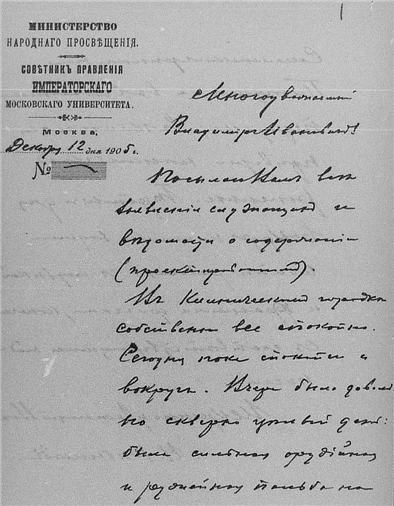 МИНИСТЕРСТВО
НАРОДНАГО ПРОСВѢЩЕНІЯ.
СОВѢТНИКЪ ПРАВЛЕНІЯ
ИМПЕРАТОРСКАГО
МОСКОВСКАГО УНИВЕРСИТЕТА.
Москва,
Декабря 12 дня 1905 г.
№
Многоуважаемый
Владиміръ Ивановичъ!
Посылаю Вамъ
служащихъ и
вѢдомости о содержаніи
Въ Клиническомъ городкѢ
собственно все спокойно.
Сегодня пока спокойно и
вокругъ. Вчера было доволь
но скверно цѢлый день:
была сильная орудійная
и ружейная пальба на